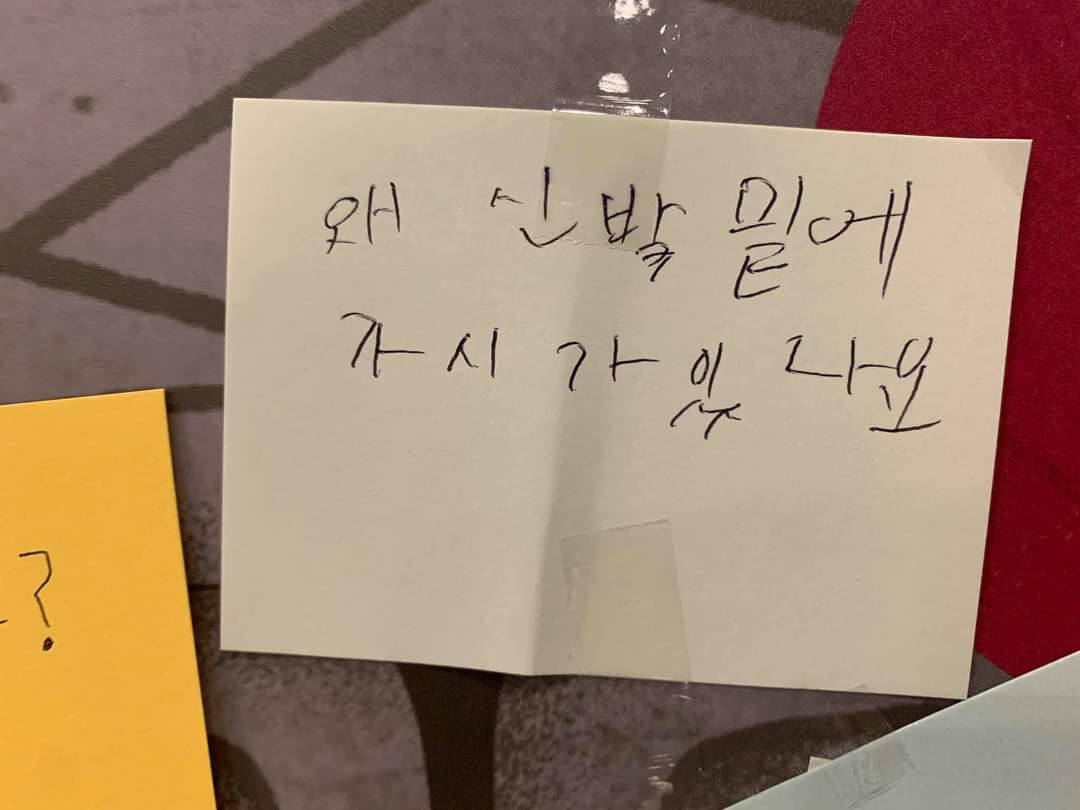 왜 신발 밑에
가시가 있나요
?